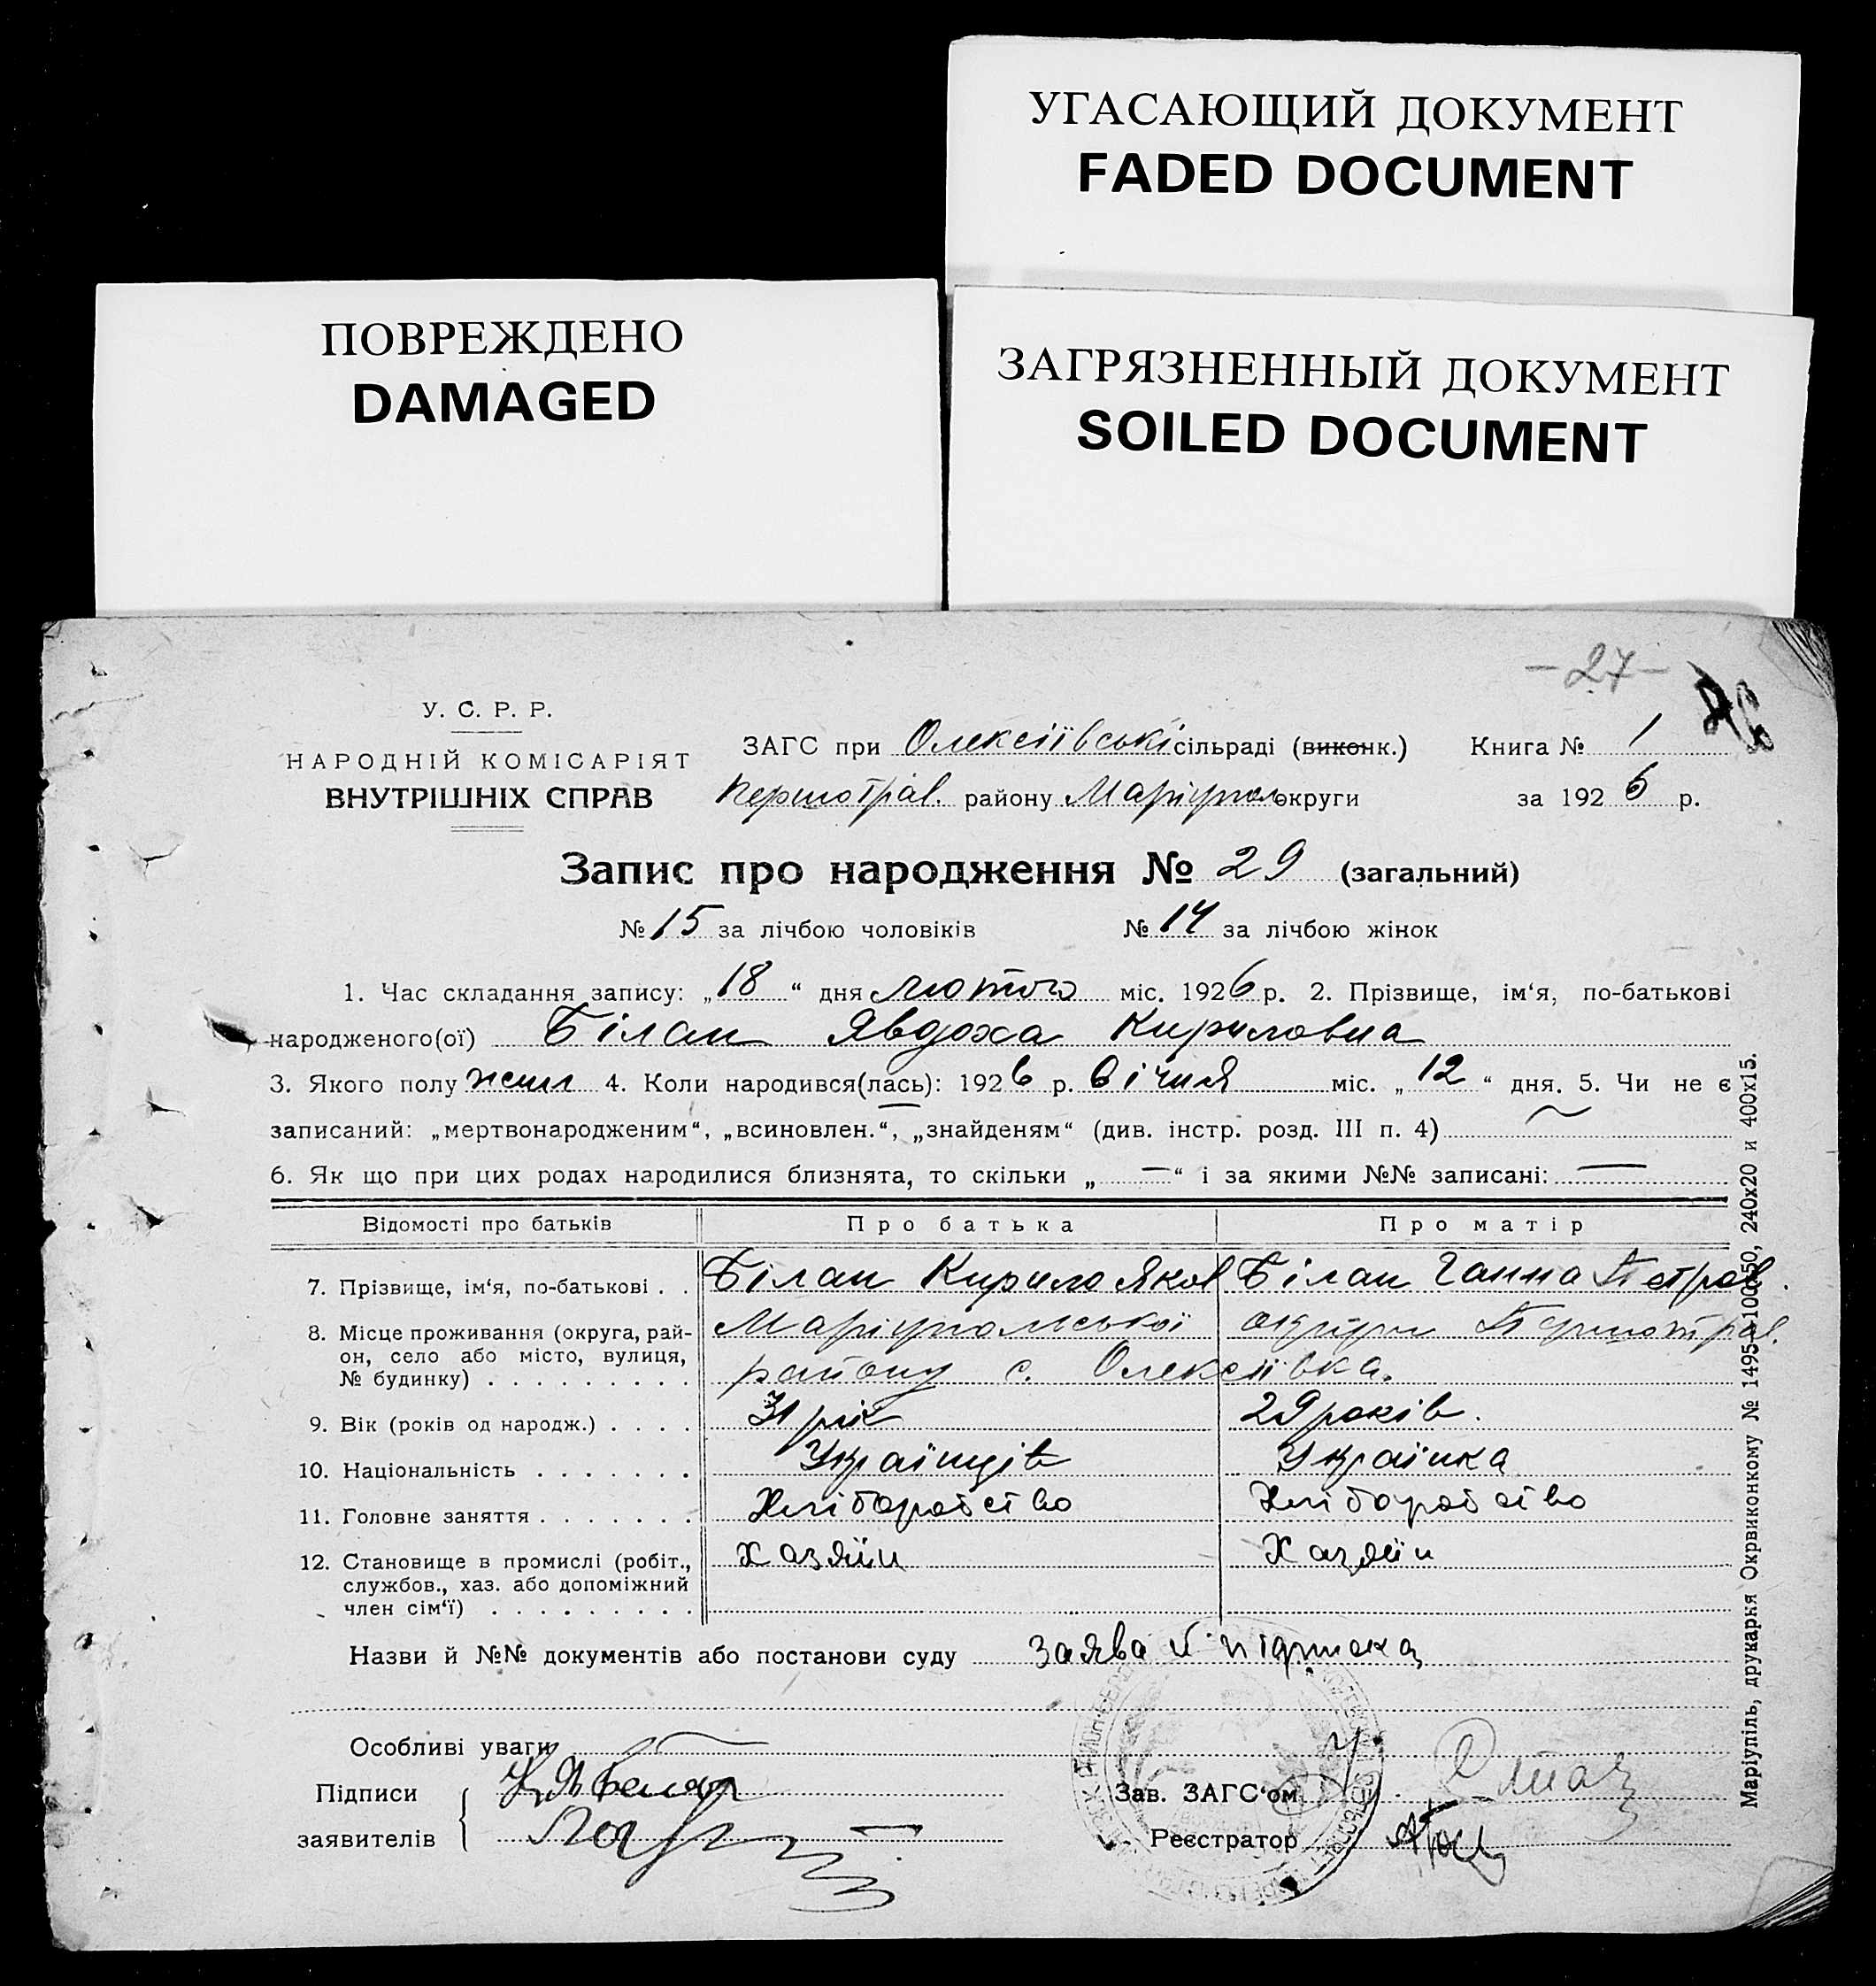 УГАСАЮЩИЙ ДОКУМЕНТ
FADED DOCUMENT
ПОВРЕЖДЕНО
DAMAGED
ЗАГРЯЗНЕННЫЙ ДОКУМЕНТ
SOILED DOCUMENT
-27-
У. С. Р. Р.
НАРОДНІЙ КОМІСАРІЯТ
ВНУТРІШНІХ СПРАВ
ЗАГС при Олексіївські сільраді (виконк.) Книга № 1
Першотрав. району Маріупол округи за 1926 р.
Запис про народження № 29 (загальний)
№ 15 за лічбою чоловіків № 14 за лічбою жінок
1. Час складання запису: „18“ дня лютого міс. 1926 р. 2. Прізвище, ім‘я, по-батькові
народженого(ої) Білан Явдоха Кириловна
3. Якого полу жін 4. Коли народився(лась): 1926 р. січня міс. „12“ дня. 5. Чи не є
записаний: „мертвонародженим“, „всиновлен.“, „знайденям“ (див. інстр. розд. III п. 4)
6. Як що при цих родах народилися близнята, то скільки „—“ і за якими №№ записані: —
Відомості про батьків Про батька Про матір
7. Прізвище, ім‘я, по-батькові . . Білан Кирило Яков Білан Ганна Петров.
8. Місце проживання (округа, рай-
он, село або місто, вулиця,
№ будинку) . . . . . . . . . Маріупольської округи Першотрав.
району с. Олексіївка.
9. Вік (років од народж.) . . . . 31 рік 29 років.
10. Національність . . . . . . . Українців Українка
11. Головне заняття . . . . . . . Хліборобство Хліборобство
12. Становище в промислі (робіт.,
службов., хаз. або допоміжний
член сім‘ї) . . . . . . . . . Хазяїн Хазяїн
Назви й №№ документів або постанови суду заява й підписка
Особливі уваги —
Підписи
заявителів
Зав. ЗАГС‘ом
Реєстратор
Маріупіль, друкарня Окрвиконкому № 1495—100х50, 240х20 и 400х15.